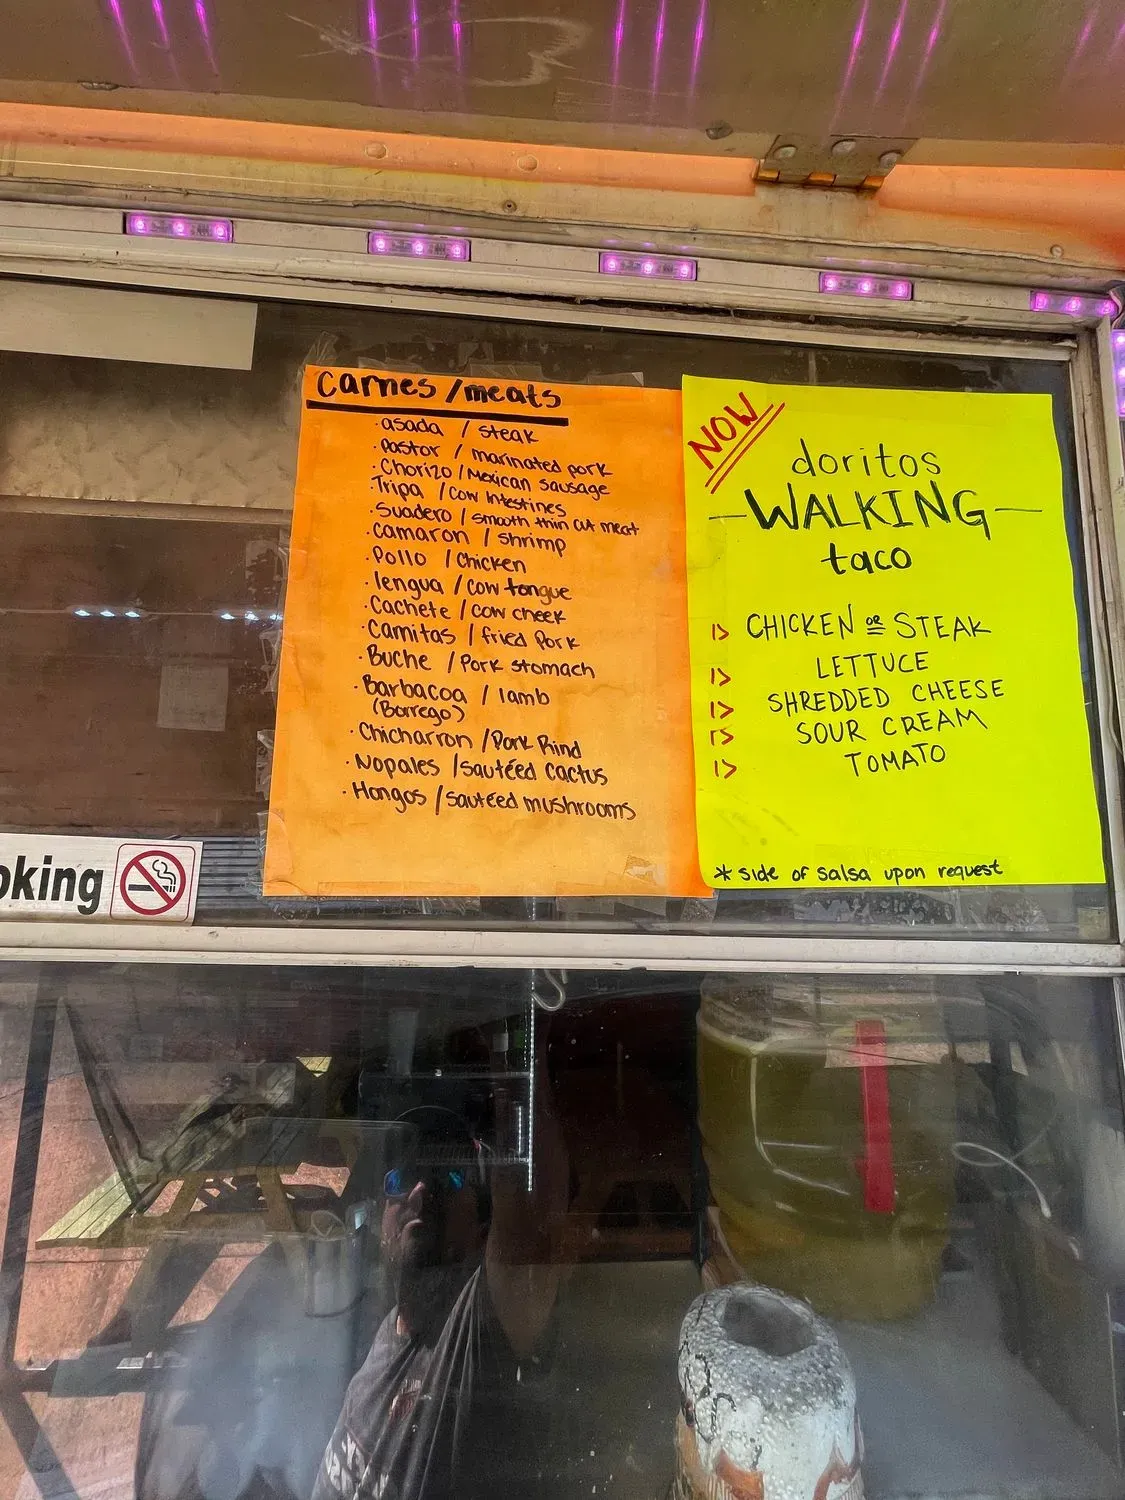 Carnes / meats
· asada / steak
· Pastor / marinated pork
· Chorizo / Mexican sausage
· Tripa / Cow Intestines
· Suadero / smooth thin cut meat
· Camaron / shrimp
· Pollo / Chicken
· lengua / cow tongue
· Cachete / cow cheek
· Carnitas / fried Pork
· Buche / Pork stomach
· Barbacoa / lamb
(Borrego)
· Chicharron / Pork Rind
· Nopales / sautéed Cactus
· Hongos / sautéed mushrooms
NOW
doritos
- WALKING -
taco
CHICKEN OR STEAK
LETTUCE
SHREDDED CHEESE
SOUR CREAM
TOMATO
* side of salsa upon request
oking